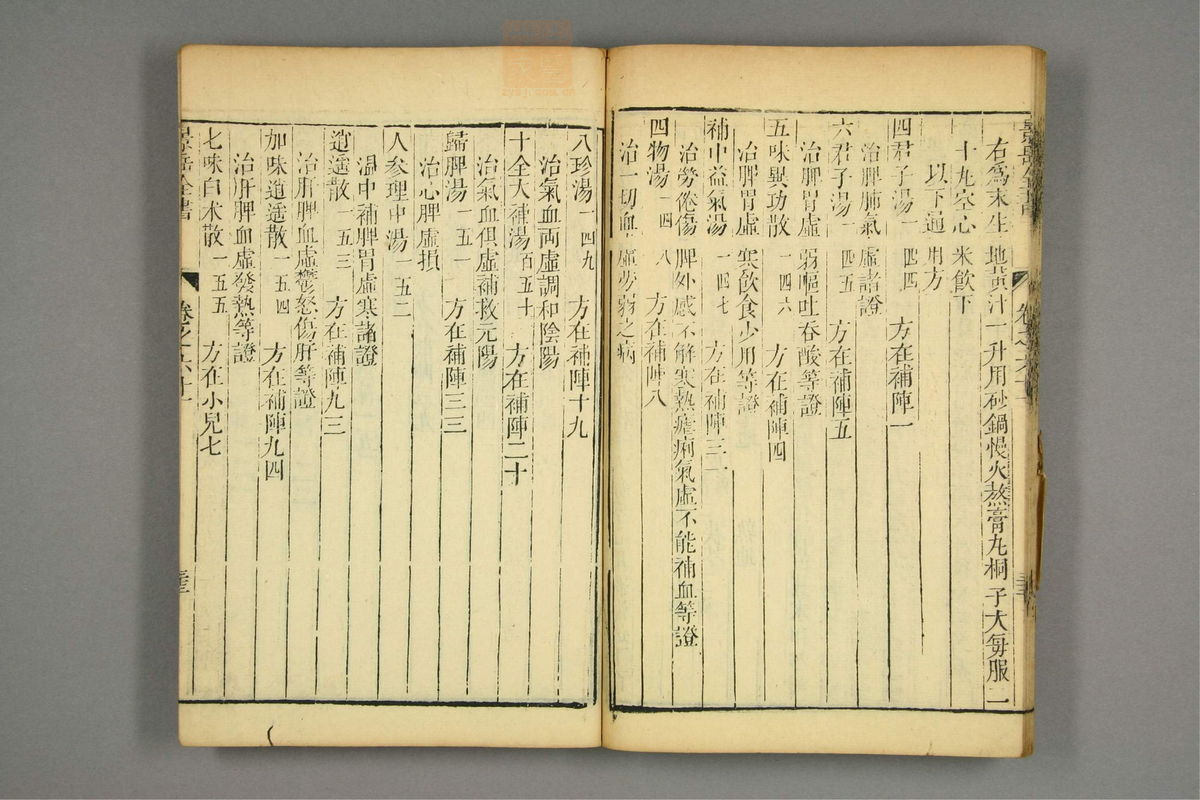 右爲末生地黃汁一升用砂鍋慢火熬膏丸桐子大每服二
十丸空心米飲下
以下通用方
四君子湯一四四 方在補陣一
治脾肺氣虛諸證
六君子湯一四五 方在補陣五
治脾胃虛弱嘔吐吞酸等證
五味異功散一四六 方在補陣四
治脾胃虛寒飲食少用等證
補中益氣湯一四七 方在補陣三一
治勞倦傷脾外感不解寒熱瘧痢氣虛不能補血等證
四物湯一四八 方在補陣八
治一切血虛勞弱之病
八珍湯一四九 方在補陣十九
治氣血兩虛調和陰陽
十全大補湯百五十 方在補陣二十
治氣血俱虛補救元陽
歸脾湯一五一 方在補陣三三
治心脾虛損
人參理中湯一五二
溫中補脾胃虛寒諸證
逍遙散一五三 方在補陣九三
治肝脾血虛鬱怒傷肝等證
加味逍遙散一五四 方在補陣九四
治肝脾血虛發熱等證
七味白术散一五五 方在小兒七
景岳全書 卷之六十一